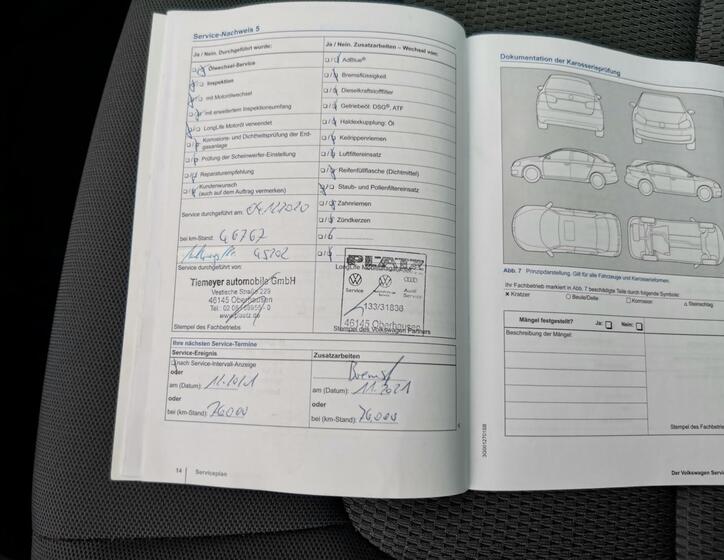 Service-Nachweis 5
Ja / Nein. Durchgeführt wurde:
Ölwechsel-Service
Inspektion
mit Motorölwechsel
mit erweitertem Inspektionsumfang
LongLife Motoröl verwendet
Korrosions- und Dichtheitsprüfung der Erdgasanlage
Prüfung der Scheinwerfer-Einstellung
Reparaturempfehlung
Kundenwunsch
(auch auf dem Auftrag vermerken)
Service durchgeführt am:
bei km-Stand: 46767
Service durchgeführt von:
Tiemeyer automobile GmbH
Vestische Straße 229
46145 Oberhausen
Stempel des Fachbetriebs
Ja / Nein. Zusatzarbeiten – Wechsel von:
AdBlue®
Bremsflüssigkeit
Dieselkraftstofffilter
Getriebeöl: DSG®, ATF
Haldexkupplung: Öl
Keilrippenriemen
Luftfiltereinsatz
Reifenfüllflasche (Dichtmittel)
Staub- und Pollenfiltereinsatz
Zahnriemen
Zündkerzen
Service
Service
Audi
Service
133/31830
46145 Oberhausen
Stempel des Volkswagen Partners
Ihre nächsten Service-Termine
Service-Ereignis
nach Service-Intervall-Anzeige
oder
am (Datum): 11.2021
oder
bei (km-Stand): 76000
Zusatzarbeiten
am (Datum): 11.2021
oder
bei (km-Stand): 76000
14 Serviceplan
Dokumentation der Karosserieprüfung
Abb. 7 Prinzipdarstellung. Gilt für alle Fahrzeuge und Karosserieformen.
Ihr Fachbetrieb markiert in Abb. 7 beschädigte Teile durch folgende Symbole:
× Kratzer ○ Beule/Delle □ Korrosion △ Steinschlag
Mängel festgestellt? Ja: Nein:
Beschreibung der Mängel:
Stempel des Fachbetrie
3G0012701SB
Der Volkswagen Servi